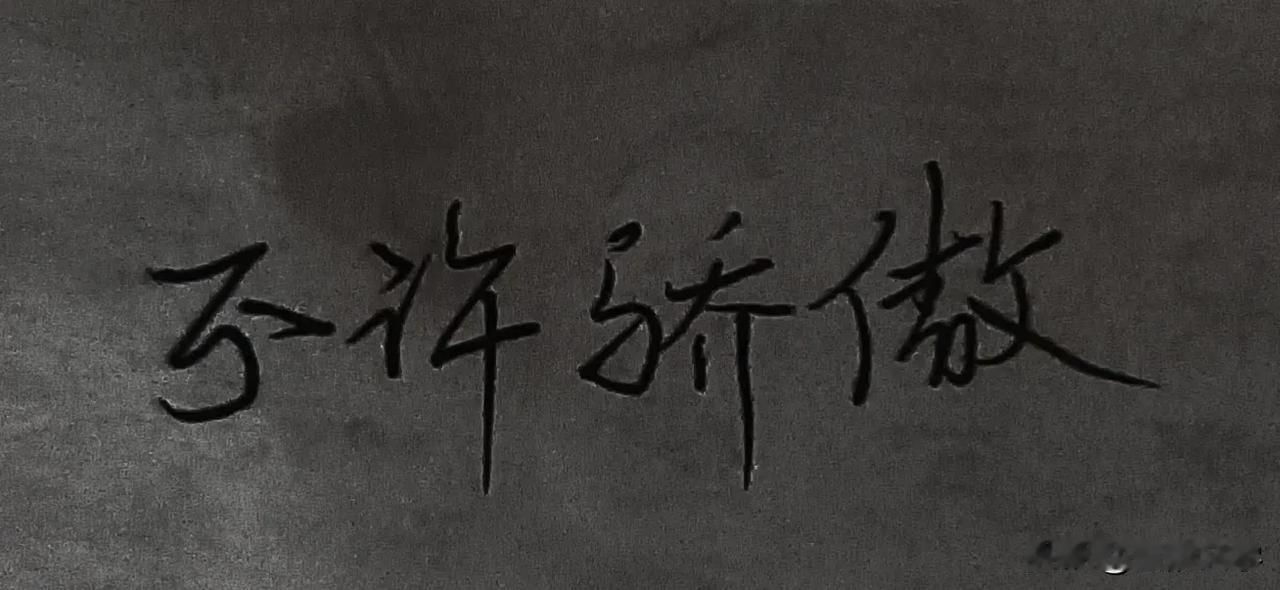 不许骄傲